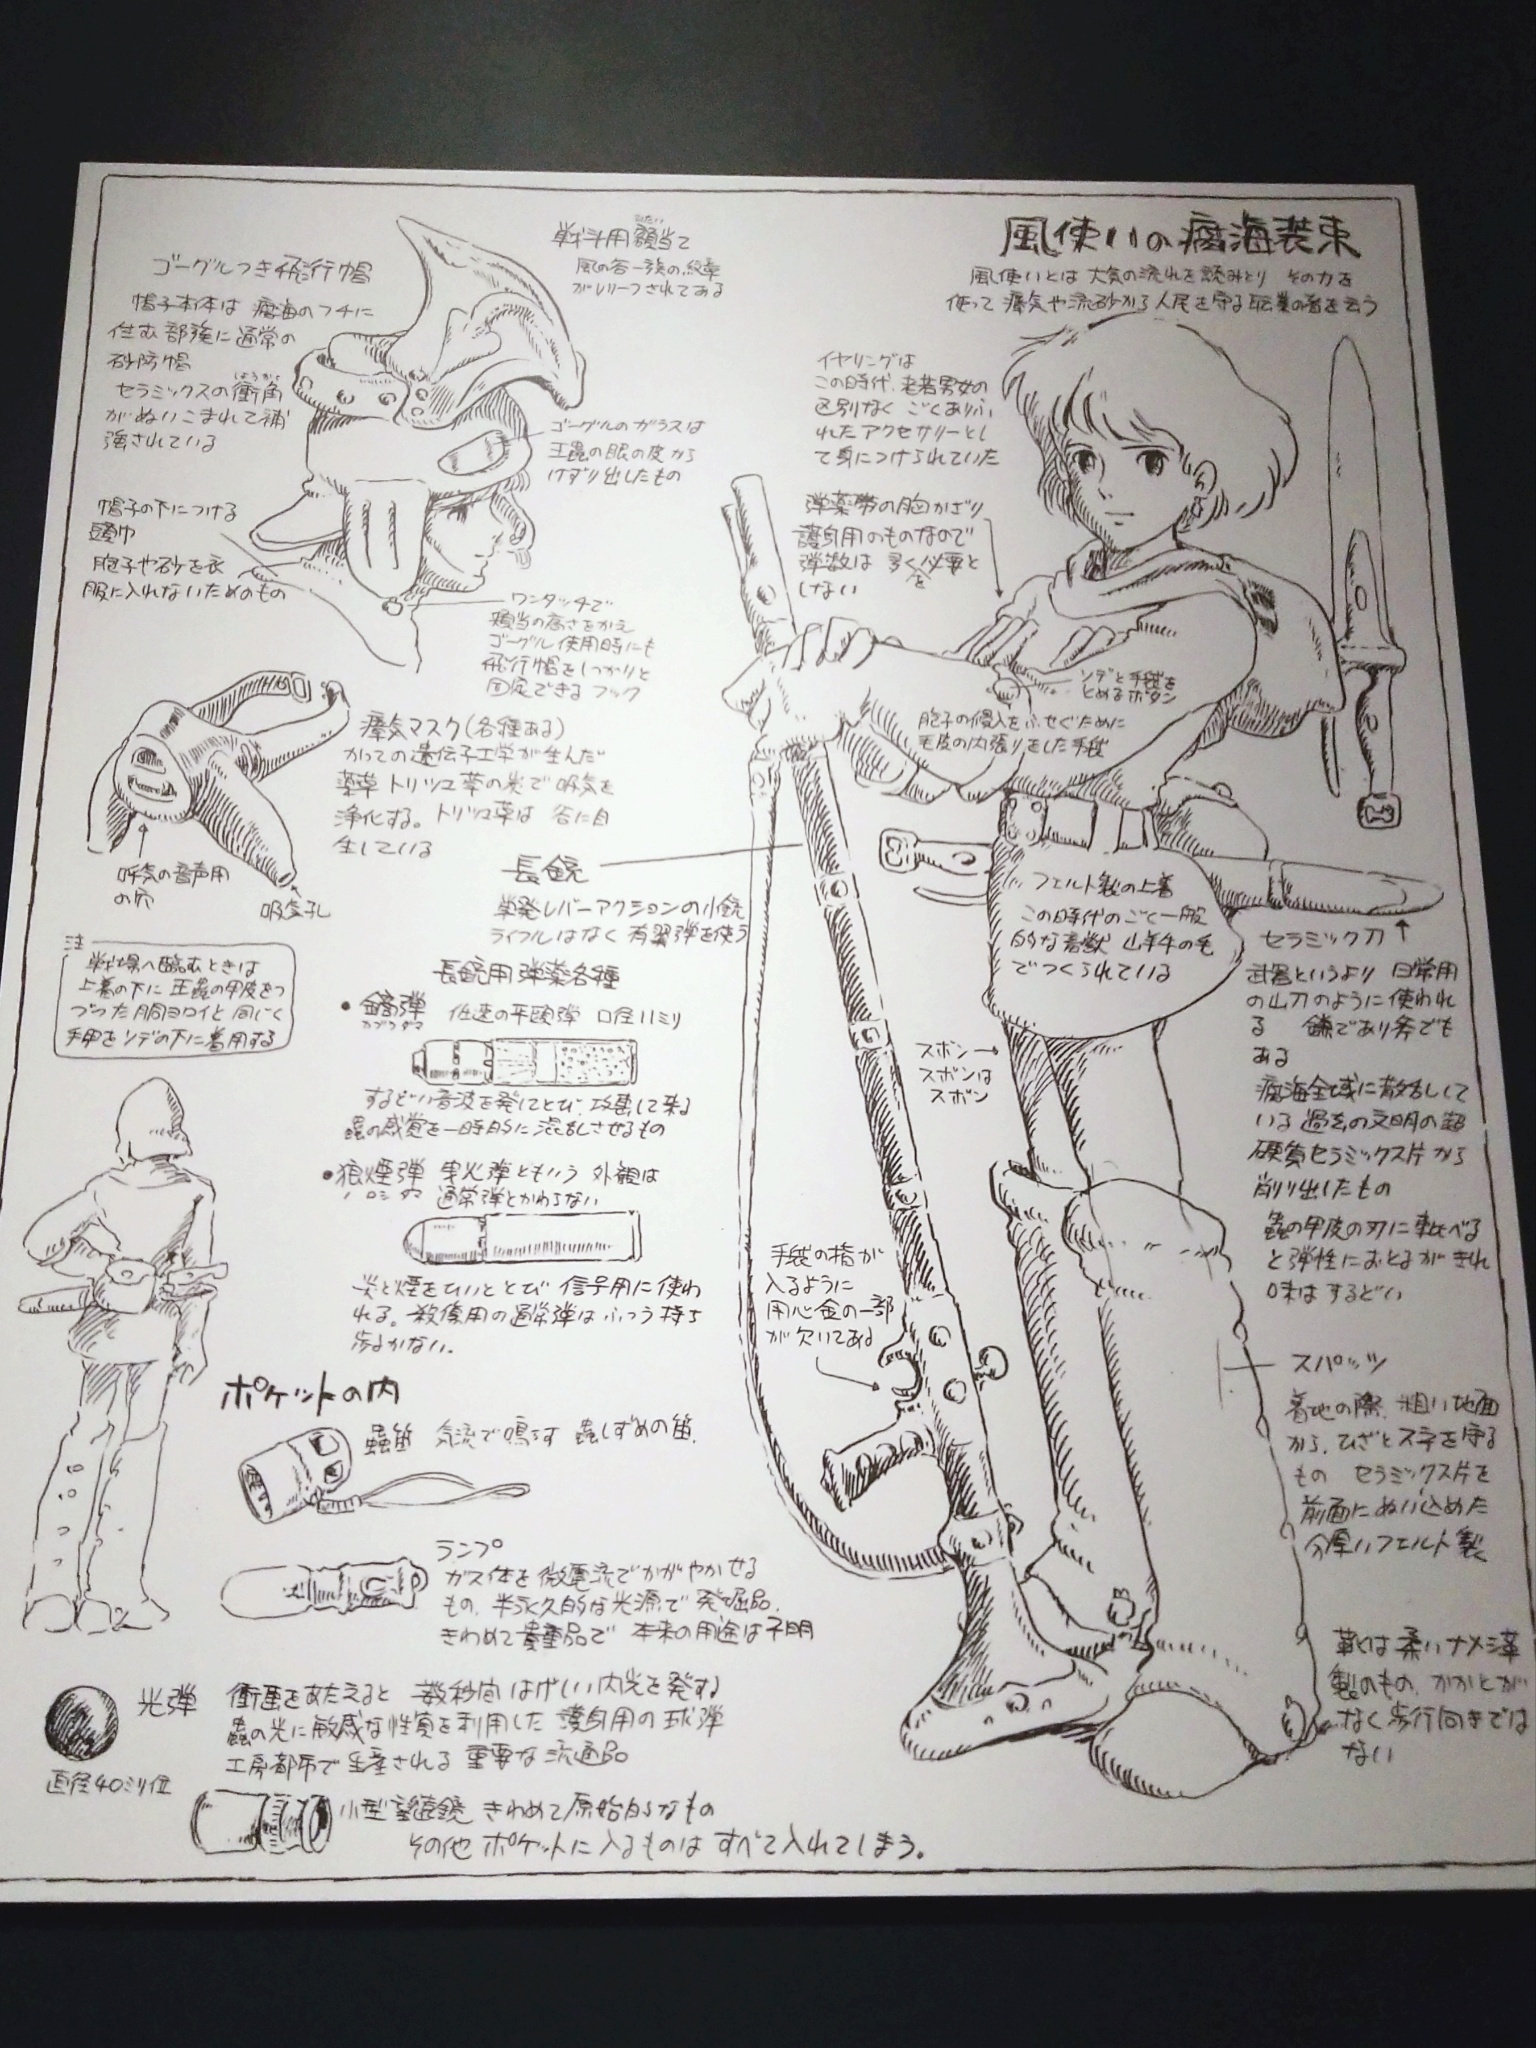 風使いの腐海装束
風使いとは 大気の流れを読みとり その力を
使って 瘴気や流砂から人民を守る職業の者を云う
戦斗用額当て
ひたい
風の谷一族の紋章
がレリーフされてある
ゴーグルつき飛行帽
帽子本体は 腐海のフチに
住む部族に通常の
砂防帽
セラミックスの衝角
しょうかく
がぬいこまれて補
強されている
ゴーグルのガラスは
王蟲の眼の皮から
けずり出したもの
帽子の下につける
頭巾
胞子や砂を衣
服に入れないためのもの
ワンタッチで
頬当の高さをかえ
ゴーグル使用時にも
飛行帽をしっかりと
固定できるフック
瘴気マスク(各種ある)
かつての遺伝子工学が生んだ
浄化する。
生している
呼気の音声用
の穴
吸気孔
注
戦場へ臨むときは
上着の下に 王蟲の甲皮をつ
づった胴ヨロイと 同じく
手甲をソデの下に着用する
イヤリングは
この時代、老若男女の
区別なく ごくありふ
れたアクセサリーとし
て身につけられていた
弾薬帯の胸かざり
護身用のものなので
弾数は 多くを必要と
しない
ソデと手袋を
とめるボタン
胞子の侵入をふせぐために
毛皮の内張りをした手袋
長銃
単発レバーアクションの小銃
ライフルはなく 有翼弾を使う
長銃用弾薬各種
•鏑弾 低速の平頭弾 口径11ミリ
カブラダマ
するどい音波を発してとび、攻撃して来る
蟲の感覚を一時的に混乱させるもの
•狼煙弾 曳火弾ともいう 外観は
ノロシダマ 通常弾とかわらない
炎と煙をひいてとび 信号用に使わ
れる。殺傷用の通常弾はふつう持ち
歩るかない。
フェルト製の上着
この時代のごく一般
的な家畜 山羊牛の毛
でつくられている
ズボン→
ズボンは
ズボン
セラミック刀
武器というより 日常用
の山刀のように使われ
る 鎌であり斧でも
ある
腐海全域に散乱して
いる過去の文明の超
硬質セラミックス片から
削り出したもの
蟲の甲皮の刃に比べる
と弾性におとるがきれ
味はするどい
手袋の指が
入るように
用心金の一部
が欠いてある
スパッツ
着地の際、粗い地面
から、ひざとスネを守る
もの セラミックス片を
前面にぬい込めた
分厚いフェルト製
靴は柔いナメシ革
製のもの、かかとが
なく歩行向きでは
ない
ポケットの内
蟲笛 気流で鳴らす 蟲しずめの笛.
ランプ
ガス体を微電流でかがやかせる
もの、半永久的な光源で 発掘品.
きわめて貴重品で 本来の用途は不明
光弾 衝撃をあたえると 数秒間はげしい閃光を発する
蟲の光に敏感な性質を利用した 護身用の球弾
工房都市で生産される 重要な流通品
直径40ミリ位
小型望遠鏡 きわめて原始的なもの
その他 ポケットに入るものは すべて入れてしまう。